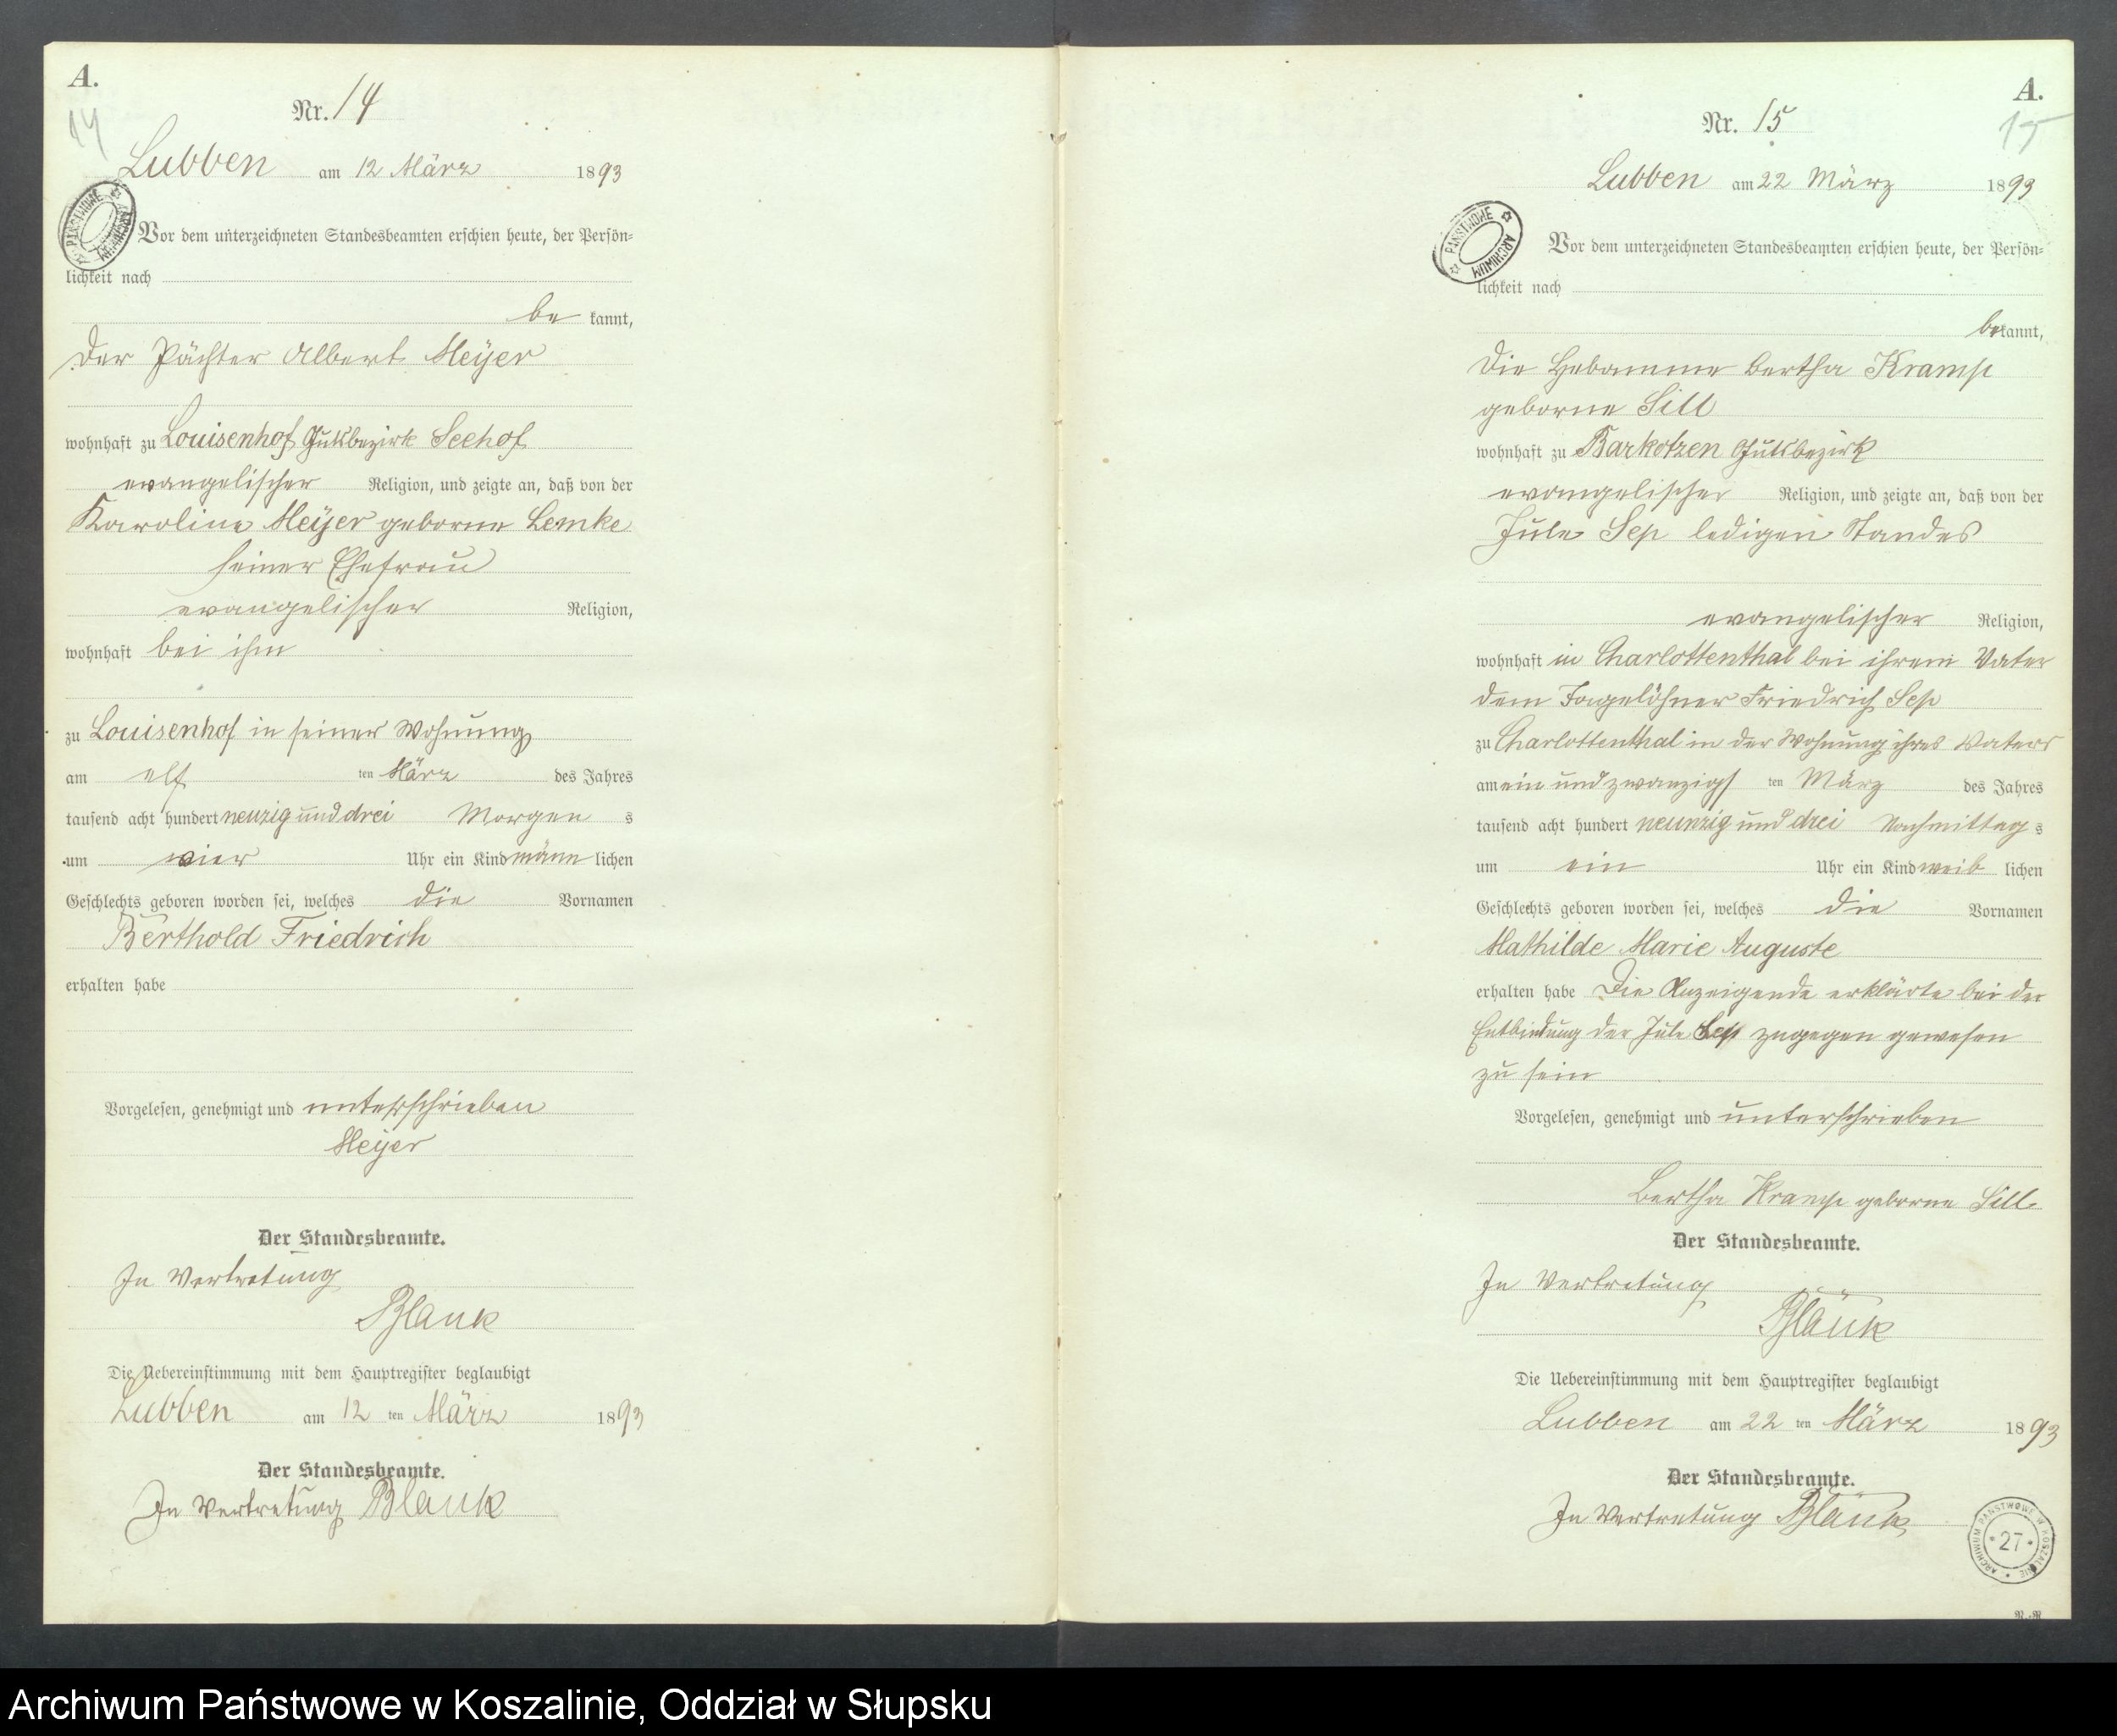 A.
14
Nr. 14
Lubben am 12 März 1893
PAŃSTWOWE ARCHIWUM
Vor dem unterzeichneten Standesbeamten erschien heute, der Persön-
lichkeit nach
be kannt,
der Pächter Albert Meÿer
wohnhaft zu Louisenhof Gutsbezirk Seehof
evangelischer Religion, und zeigte an, daß von der
Karoline Meÿer geborne Lemke
seiner Ehefrau
evangelischer Religion,
wohnhaft bei ihm
zu Louisenhof in seiner Wohnung
am elf ten März des Jahres
tausend acht hundert neunzig und drei Morgen s
um vier Uhr ein Kind männ lichen
Geschlechts geboren worden sei, welches die Vornamen
Berthold Friedrich
erhalten habe
Vorgelesen, genehmigt und unterschrieben
Meÿer
Der Standesbeamte.
In Vertretung
Blank
Die Uebereinstimmung mit dem Hauptregister beglaubigt
Lubben am 12 ten März 1893
Der Standesbeamte.
In Vertretung Blank
A.
15
Nr. 15
Lubben am 22 März 1893
PAŃSTWOWE ARCHIWUM
Vor dem unterzeichneten Standesbeamten erschien heute, der Persön-
lichkeit nach
bekannt,
die Hebamme Bertha Kramp
geborne Sill
wohnhaft zu Barkotzen Gutsbezirk
evangelischer Religion, und zeigte an, daß von der
Jule Sep ledigen Standes
evangelischer Religion,
wohnhaft in Charlottenthal bei ihrem Vater
dem Tagelöhner Friedrich Sep
zu Charlottenthal in der Wohnung ihres Vaters
am ein und zwanzigs ten März des Jahres
tausend acht hundert neunzig und drei Nachmittag s
um ein Uhr ein Kind weib lichen
Geschlechts geboren worden sei, welches die Vornamen
Mathilde Marie Auguste
erhalten habe Die Anzeigende erklärte bei der
Entbindung der Jule Sep zugegen gewesen
zu sein
Vorgelesen, genehmigt und unterschrieben
Bertha Kramp geborne Sill
Der Standesbeamte.
In Vertretung
Blank
Die Uebereinstimmung mit dem Hauptregister beglaubigt
Lubben am 22 ten März 1893
Der Standesbeamte.
In Vertretung Blank
ARCHIWUM PAŃSTWOWE W KOSZALINIE
* 27 *
Archiwum Państwowe w Koszalinie, Oddział w Słupsku